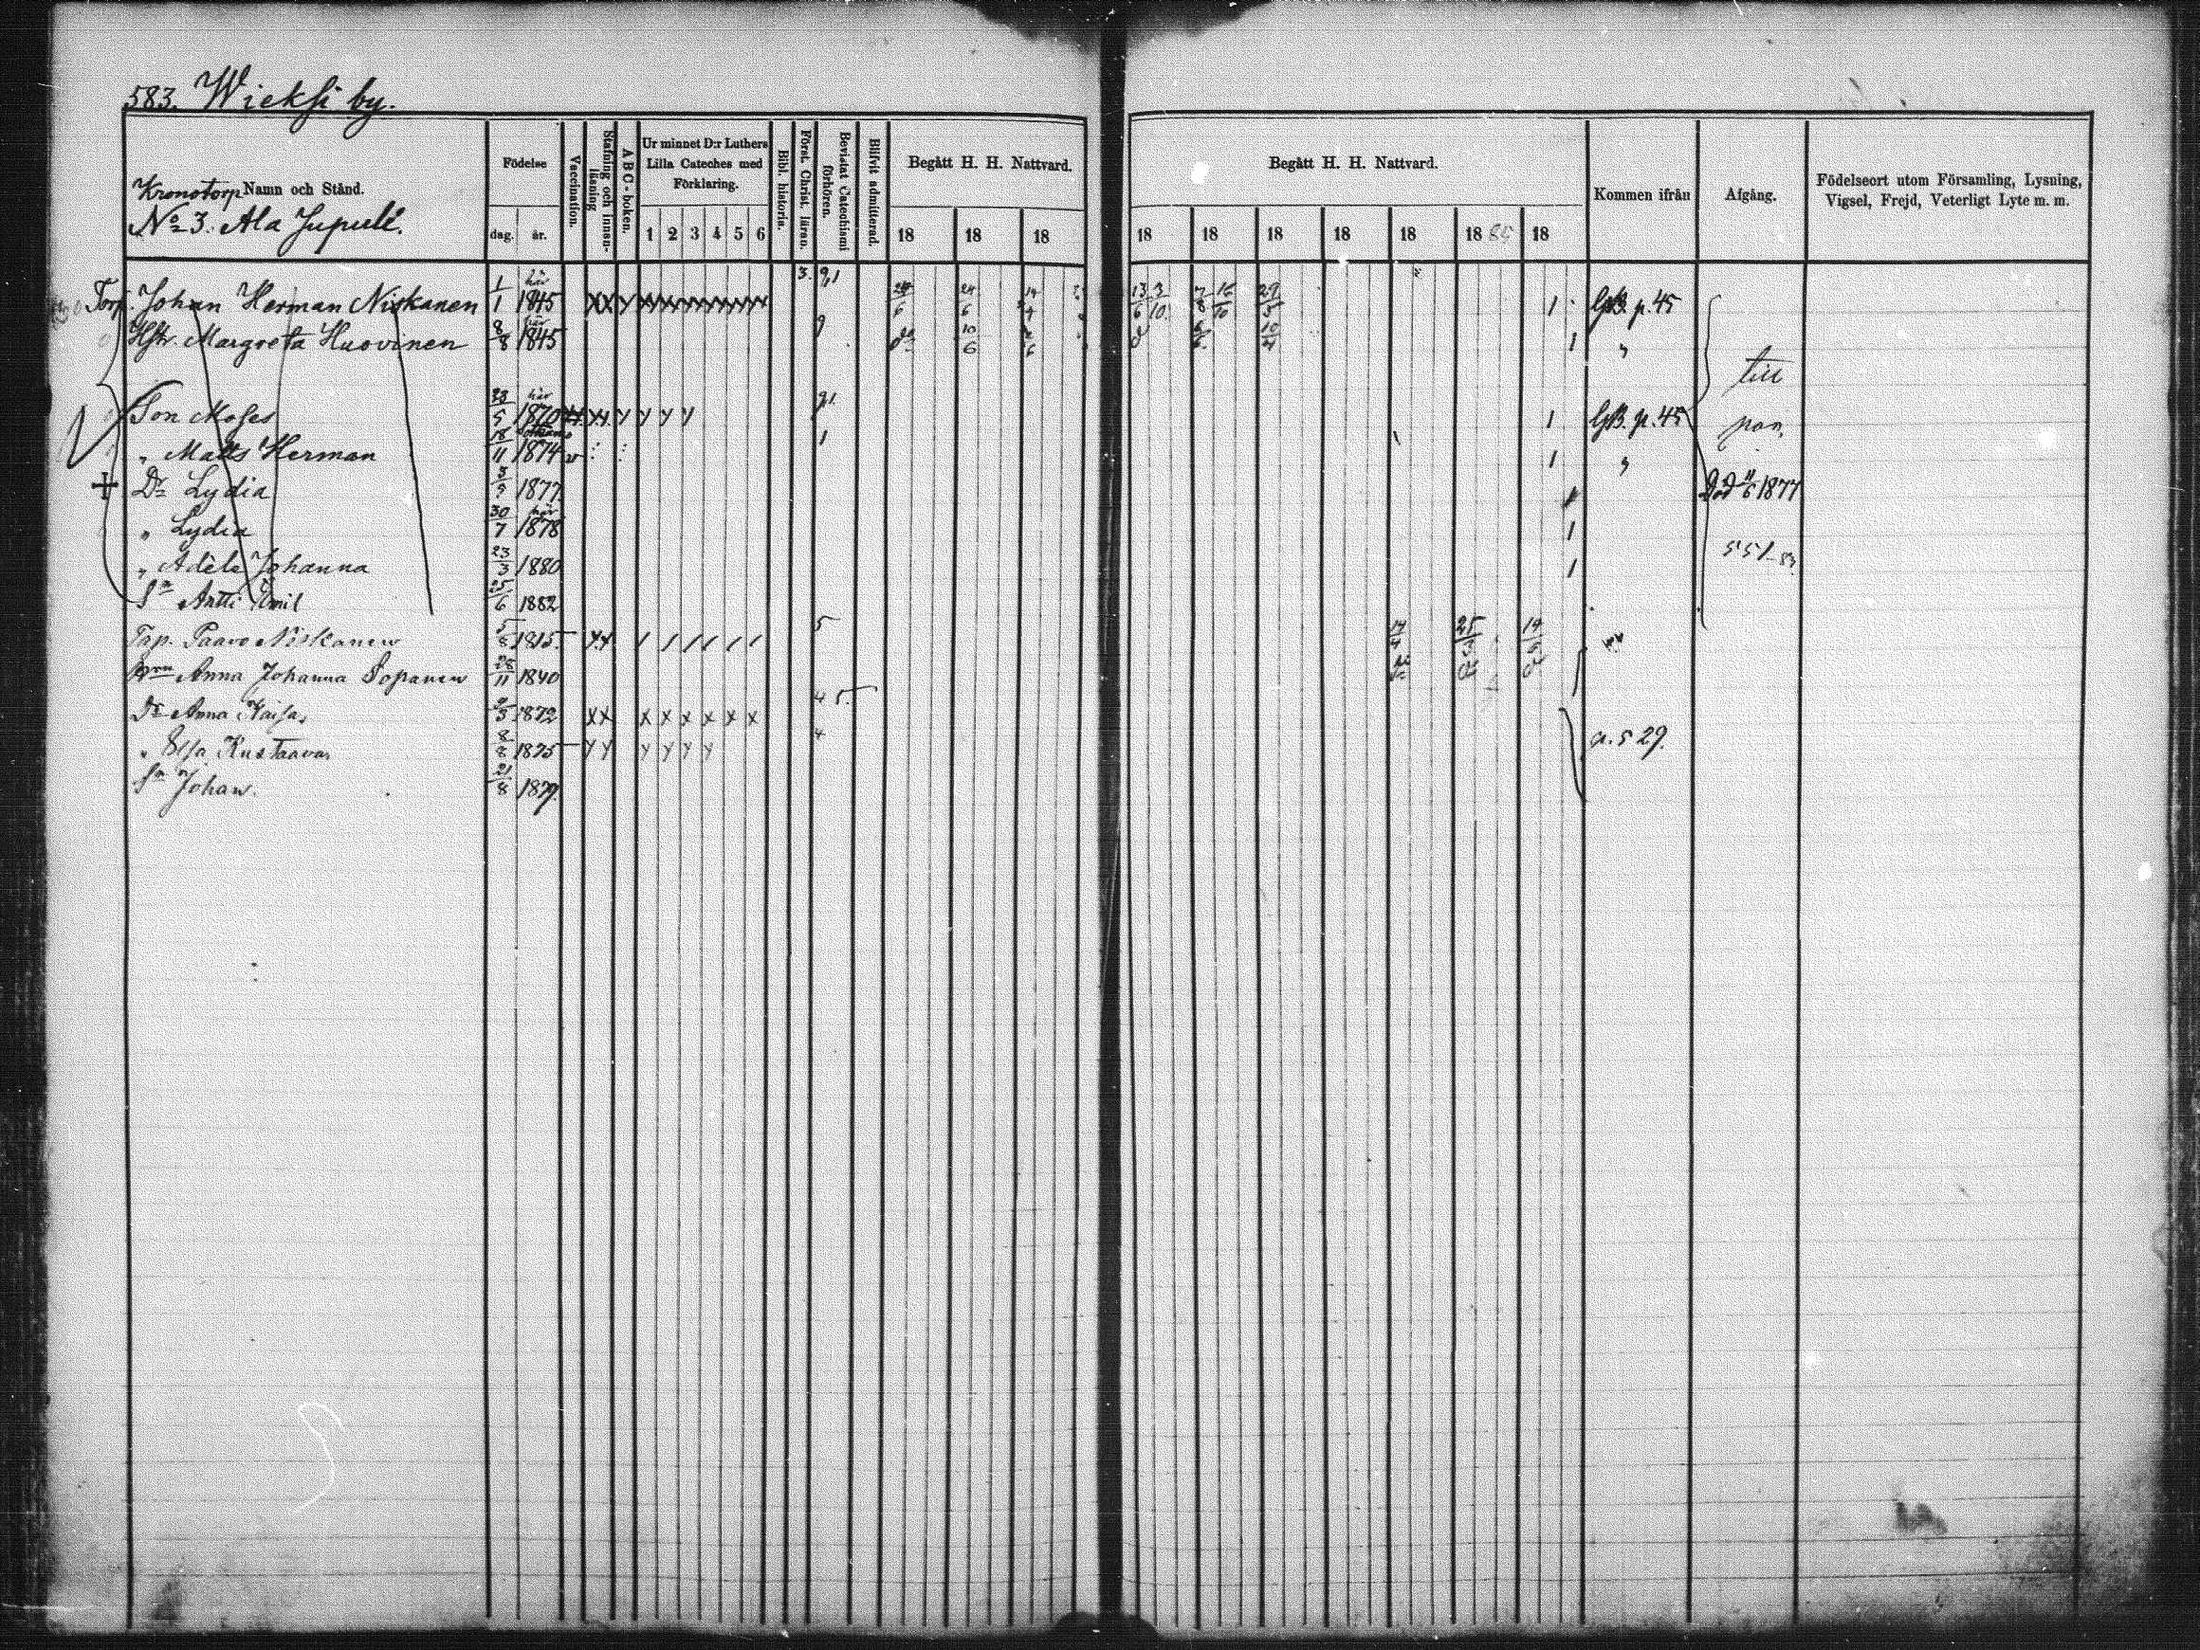 583. Wieksi by.
Kronotorp Namn och Stånd.
No 3. Ala Jupuli.
Födelse
dag. år.
Vaccination.
Stafning och innanläsning
A B C-boken.
Ur minnet D:r Luthers Lilla Cateches med Förklaring.
1 2 3 4 5 6
Bibl. historia.
Först. Christ. läran.
Bevistat Catechismi förhören.
Bilfvit admitterad.
Begått H. H. Nattvard.
18 18 18
Begått H. H. Nattvard.
18 18 18 18 18 18 85 18
Kommen ifrån
Afgång.
Födelseort utom Församling, Lysning, Vigsel, Frejd, Veterligt Lyte m. m.
Torp. Johan Herman Niskanen 1/1 här 1845 3. 9,1 24/6 24/6 14/4 13/6 3/10 7/8 16/10 29/5 1 GB. p. 45
Hstr. Margreta Huovinen 8/8 här 1845 9 10/6 10/4 1 "
till
Son Moses 23/5 här 1870 9,1 1 GB. p. 45 pon.
" Matts Herman 18/11 1874 v 1 1 "
Dr Lydia 1877 Död 11/6 1877
" Lydia 30/7 här 1878 1
" Adéle Johanna 23/3 1880 1 551-83
Sn Antti Emil 25/6 1882
Trp. Paavo Niskanen 5/8 1815 5 14/4 25/3 14/5
Anna Johanna Sopanen 28/11 1840
Dr Anna Kaisa 1872 4 5.
" Elsa Kustaava 8/8 1875 4 p. 529.
Sn Johan. 21/8 1879.